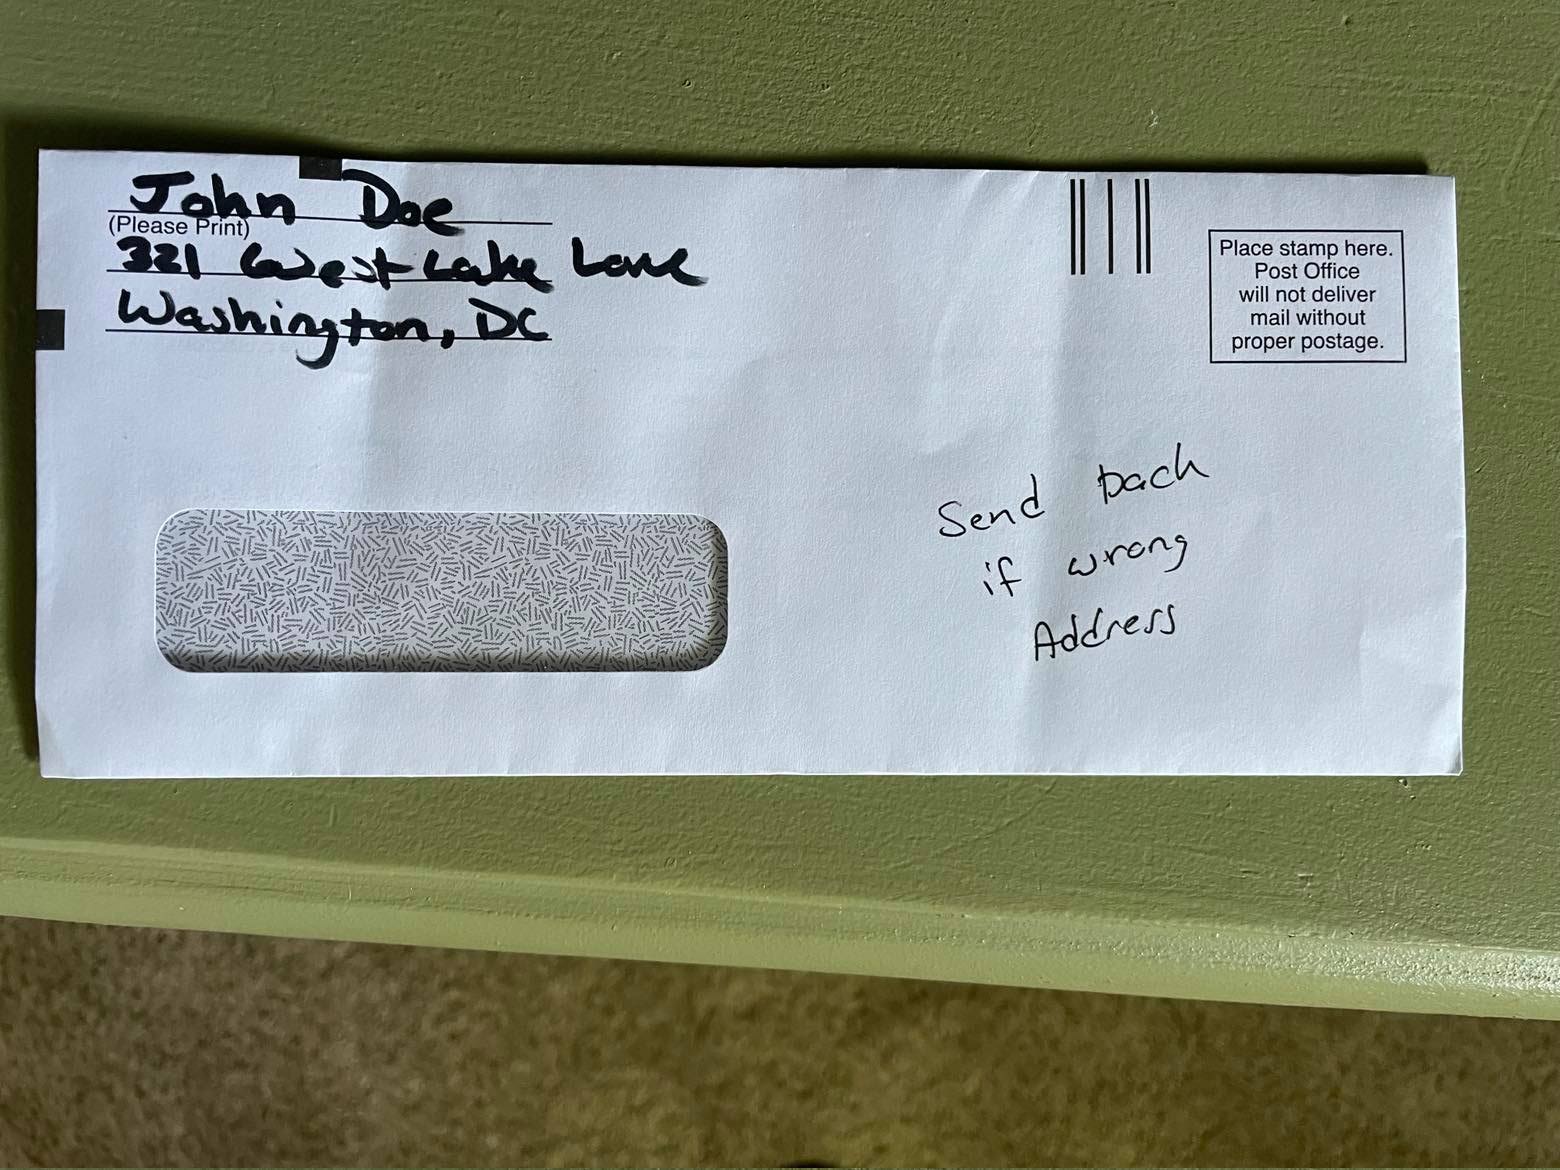 John Doe
(Please Print)
321 West Lake Lane
Washington, DC
Place stamp here.
Post Office
will not deliver
mail without
proper postage.
Send back
if wrong
Address